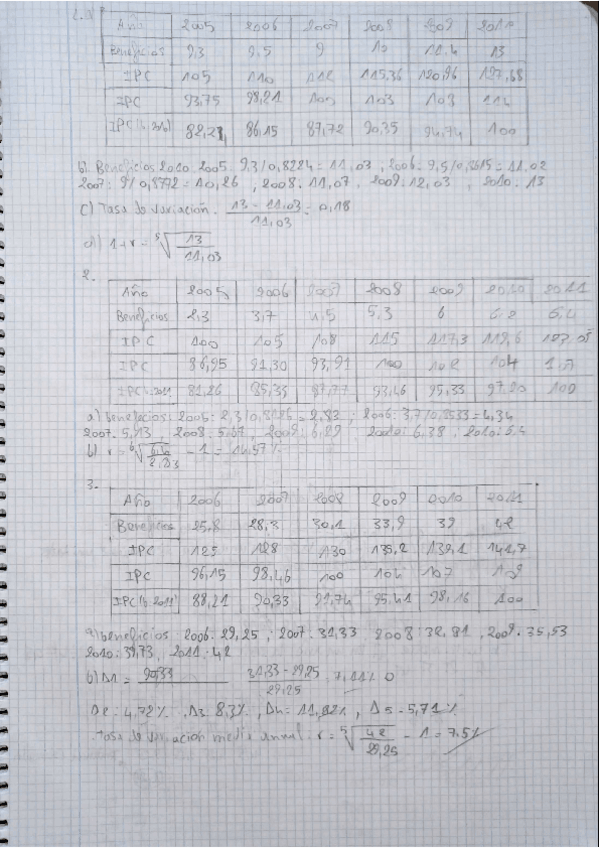 Año 2005 2006 2007 2008 2009 2010
Beneficios 9,3 9,5 9 10 11,4 13
IPC 105 110 112 115,36 120,96 127,68
IPC 93,75 98,21 100 103 108 114
82,23 86,15 87,72 90,35 94,74 100
b) Beneficios 2010: 2005: 9,3/0,8224 = 11,03 ; 2006: 9,5/0,8615 = 11,02
2007: 9/0,8772 = 10,26 , 2008: 11,07 . 2009: 12,03 , 2010: 13
c) Tasa de variación: 13 - 11,03 / 11,03 = 0,18
d) 1+r = 5√ 13 / 11,03
2.
Año 2005 2006 2007 2008 2009 2010 2011
Beneficios 2,3 3,7 4,5 5,3 6 6,2 6,4
IPC 100 105 108 115 117,3 119,6
IPC 86,95 91,30 93,91 100 102 104
81,26 85,33 87,77 93,46 95,33 97,20 100
a) beneficios: 2005: = 2,83 ; 2006: 3,7/0,8533 = 4,34
2007: 5,13 2008: 5,67 , 2009: 6,29 6,38
b) r = 6√ - 1 = 14,57%
3.-
Año 2006 2007 2008 2009 2010 2011
Beneficios 25,8 28,3 30,1 33,9 39 42
IPC 125 128 130 135,2 139,1 141,7
IPC 96,15 98,46 100 104 107 109
IPC (b. 2011) 88,21 90,33 91,74 95,41 98,16 100
a) beneficios: 2006: 29,25 , 2007: 31,33 2008: 32,81 , 2009: 35,53
2010: 39,73 , 2011: 42
b) Δ1 = 90,33 31,33 - 29,25 / 29,25 7,11%
Δ2 = 4,72% , Δ3 = 8,3% , Δ4 = 11,82% , Δ5 = 5,71%
Tasa de variación media anual: r = 5√ 42 / 29,25 - 1 = 7,5%